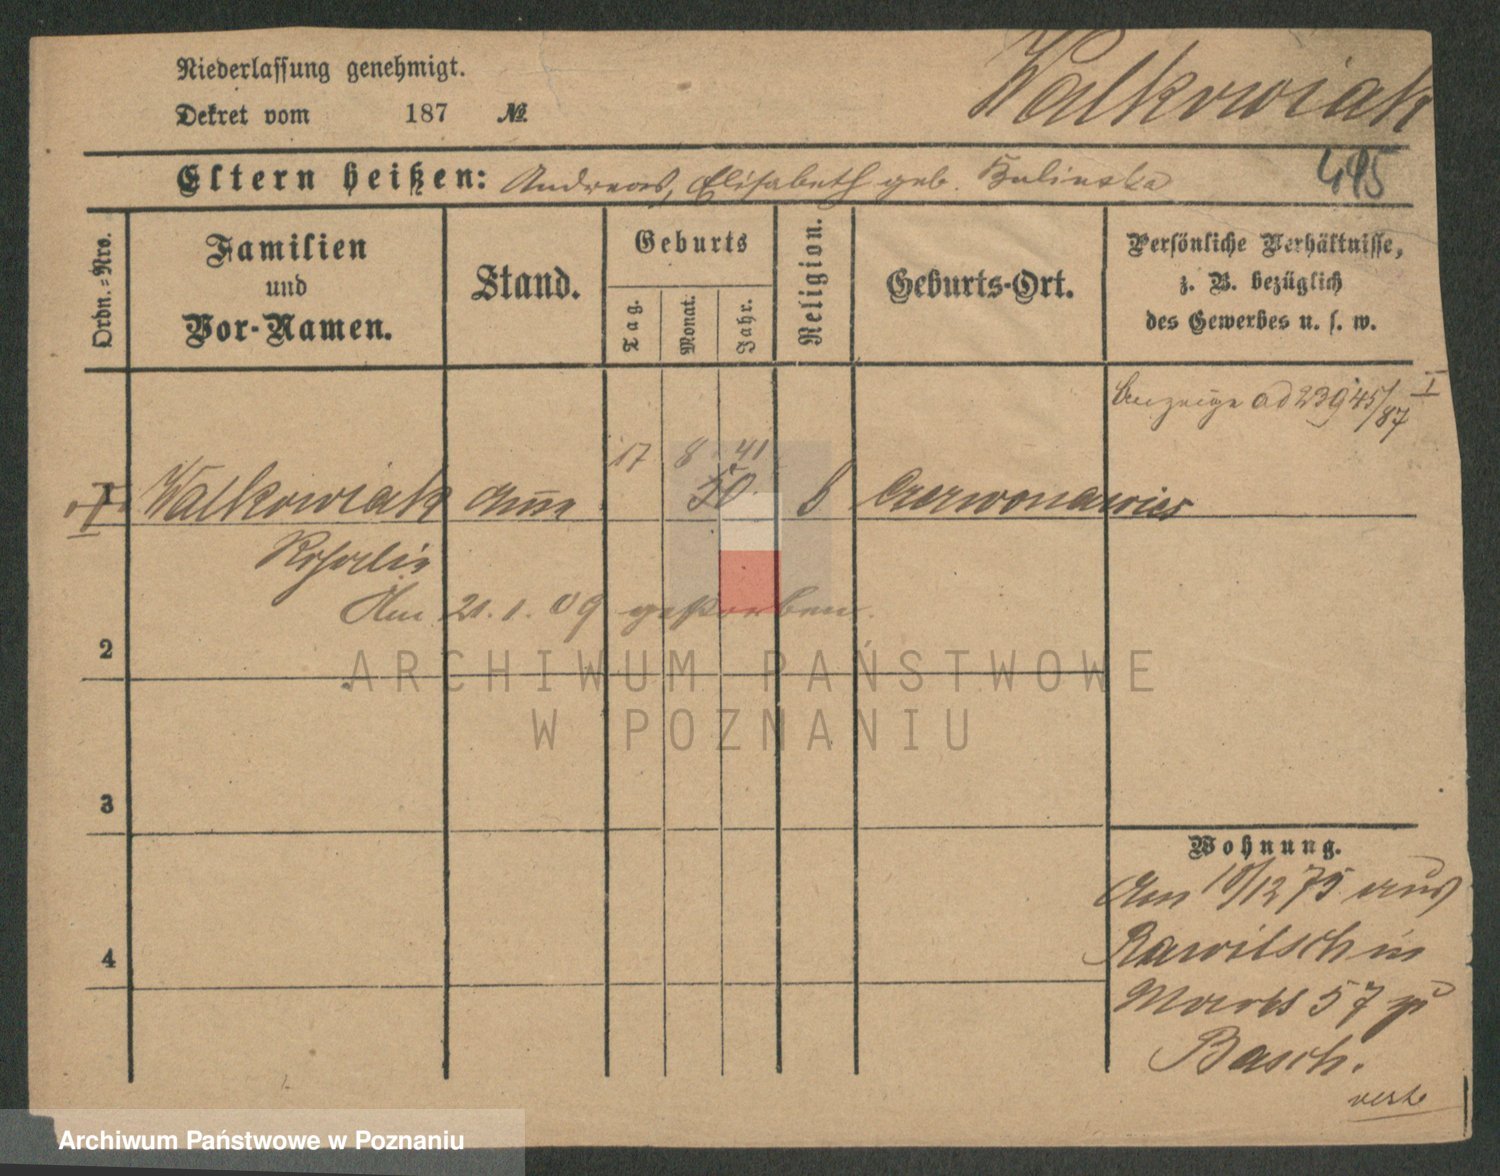 Niederlassung genehmigt.
Dekret vom 187 №
Walkowiak
495
Eltern heißen: Andreas, Elisabeth geb. Kulinska
Ordn.-Nro.
Familien
und
Vor-Namen.
Stand.
Geburts
Tag.
Monat.
Jahr.
Religion.
Geburts-Ort.
Persönliche Verhältnisse,
z. B. bezüglich
des Gewerbes u. s. w.
Anzeige ad 23945/87 I
17 8 41
50
1 Walkowiak
Czerwonawies
Am 21.1.09 gestorben.
2
3
4
Wohnung.
Am 10/12 75 aus
Rawitsch in
Markt 57 zu
Basch.
ARCHIWUM PAŃSTWOWE
W POZNANIU
Archiwum Państwowe w Poznaniu